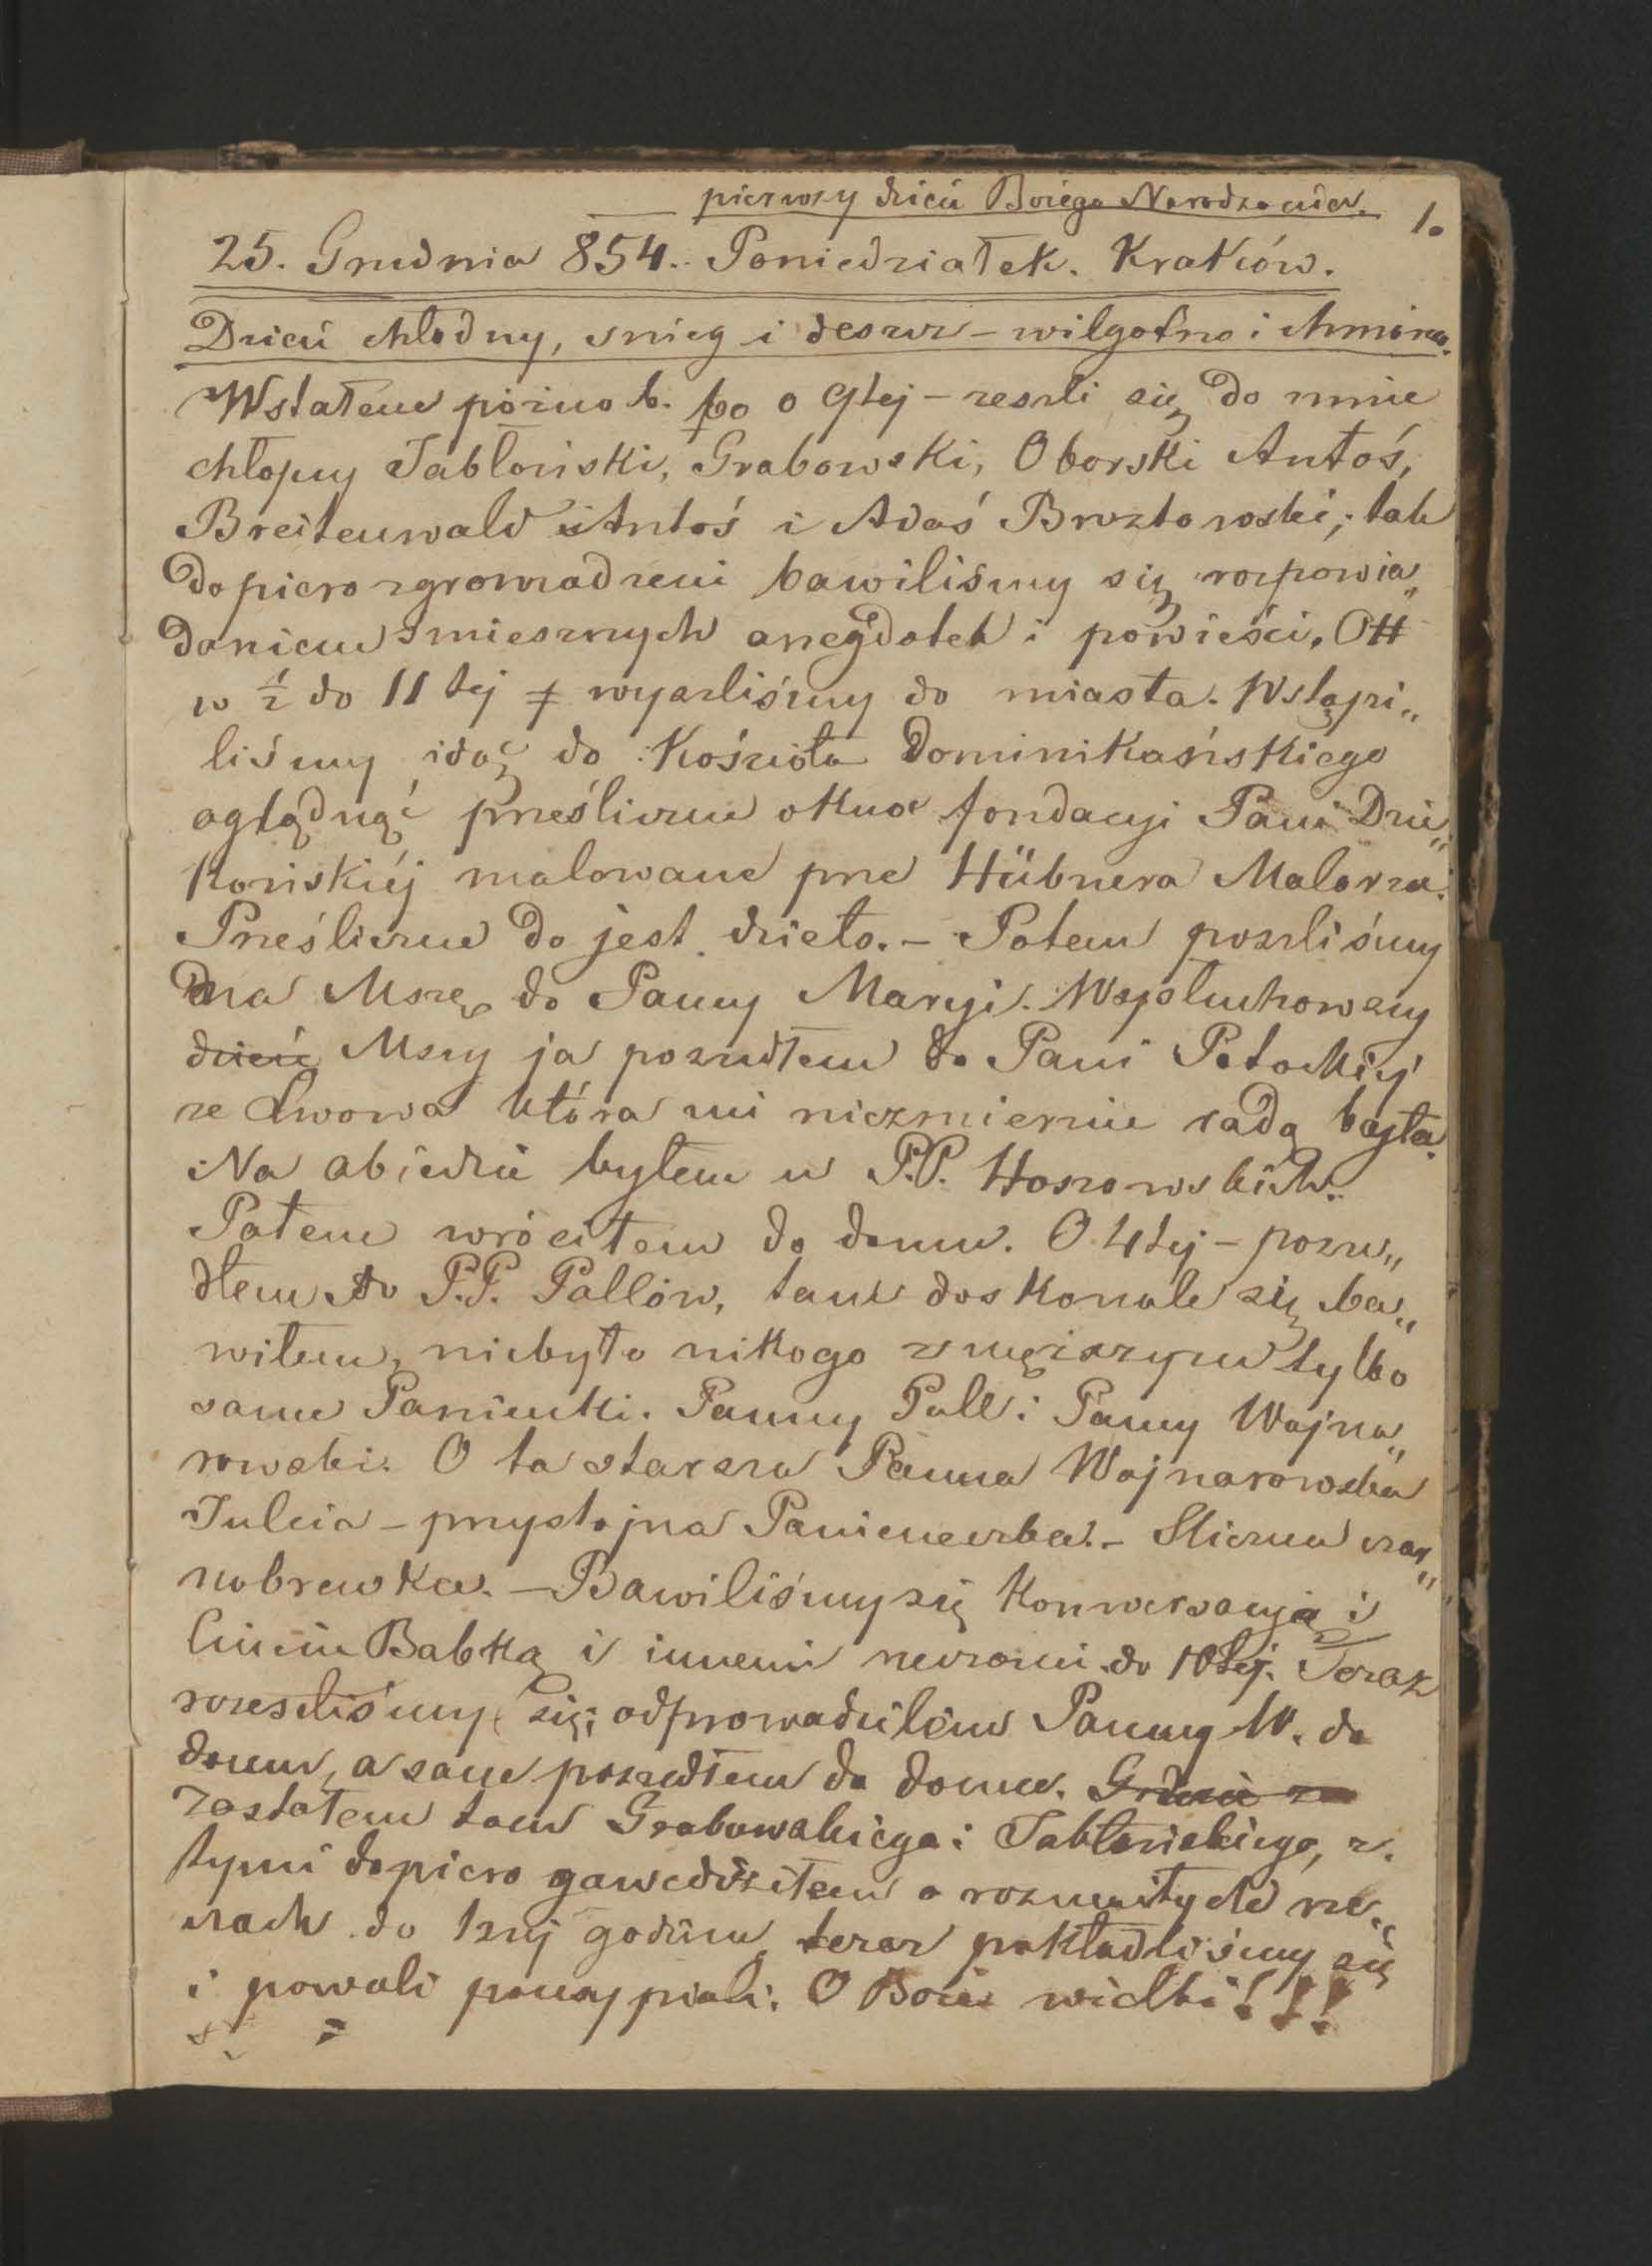 pierwszy dzień Bożego Narodzenia.
1.
25. Grudnia 854. Poniedziałek. Kraków.
Dzień chłodny, snieg i deszcz - wilgotno i chmurno.
Wstałem pózno b. bo o 9tej - zeszli się do mnie
chłopcy Jabłoński, Grabowski, Oborski Antoś,
Breitenwald Antoś i Adaś Brzztowski; tak
dopiero zgromadzeni bawiliśmy się rozpowia„
daniem smiesznych anegdotek i powieści. Ott
w ½ do 11 tej wyszliśmy do miasta. Wstąpi„
liśmy idąc do Kościoła Dominikańskiego
oglądnąć prześliczne okna fondacyi Pani Dzie„
końskiéj malowane prze Hübnera Malarza.
Prześliczne do jest dzieło. - Potem poszliśmy
na Mszę do Panny Maryi. Wysłuchowszy
dzień Mszy ja poszedłem do Pani Potockiéj
ze Lwowa która mi niezmiernie rada była.
Na obiedzie byłem u P.P. Hoszowskich.
Potem wróciłem do domu. O 4tej - posze„
dłem do P.P. Pallów, tam doskonale się ba„
wiłem, niebyło nikogo z męższyzn tylko
same Panienki. Panny Pall i Panny Wojna„
rowski. O ta starsza Panna Wojnarowska
Julcia - przystojna Panieneczka. - Sliczna czar„
nobrewka. - Bawiliśmy się konwersacyją i
Babką i innemi rzeczami do 10tej. Teraz
rozeszliśmy się; odprowadziłem Panny W. do
domu, a sam poszedłem do domu.
Zastałem tam Grabowskiego i Jabłońskiego, z
tymi dopiero gawędziłem o rozmaitych rze„
czach do 1szej godzin, teraz pokładliśmy się
i powoli pousypiali. O Boże wielki!!!